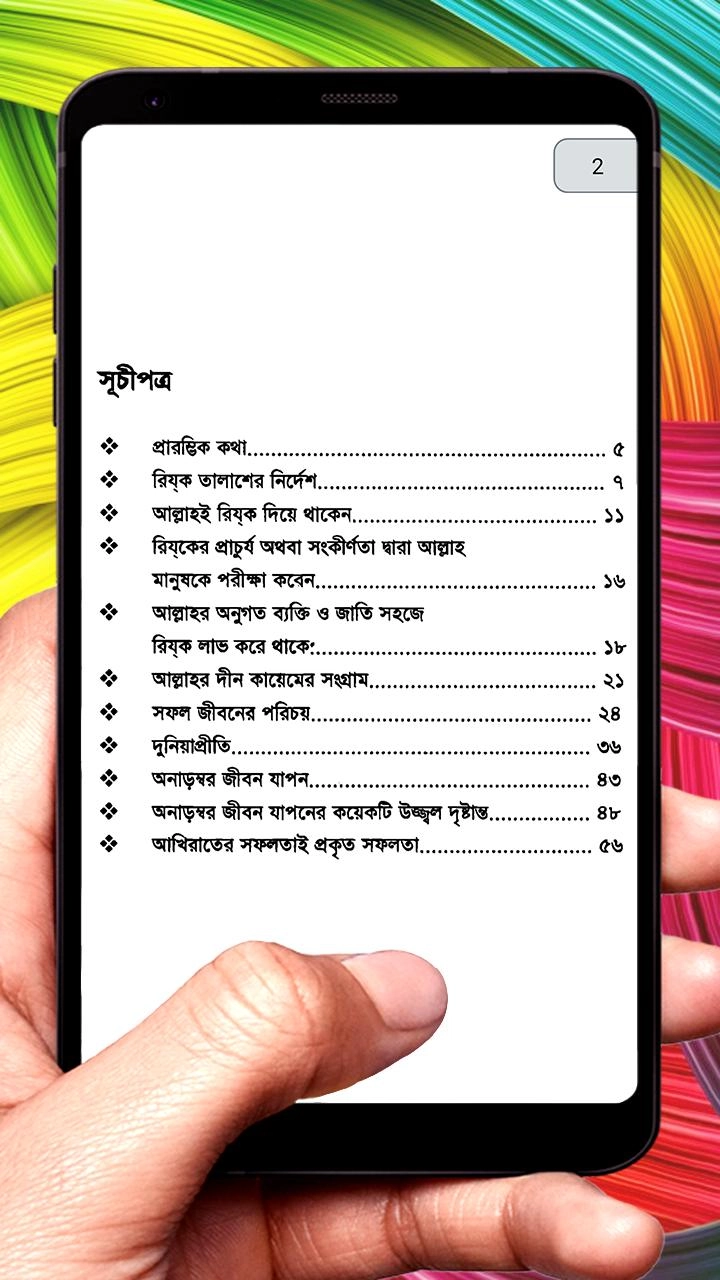 2
সূচীপত্র
❖ প্রারম্ভিক কথা............................................................ ৫
❖ রিয্‌ক তালাশের নির্দেশ................................................ ৭
❖ আল্লাহই রিয্‌ক দিয়ে থাকেন......................................... ১১
❖ রিয্‌কের প্রাচুর্য অথবা সংকীর্ণতা দ্বারা আল্লাহ
মানুষকে পরীক্ষা কবেন............................................... ১৬
❖ আল্লাহর অনুগত ব্যক্তি ও জাতি সহজে
রিয্‌ক লাভ করে থাকে............................................... ১৮
❖ আল্লাহর দীন কায়েমের সংগ্রাম...................................... ২১
❖ সফল জীবনের পরিচয়............................................... ২৪
❖ দুনিয়াপ্রীতি............................................................ ৩৬
❖ অনাড়ম্বর জীবন যাপন............................................... ৪৩
❖ অনাড়ম্বর জীবন যাপনের কয়েকটি উজ্জ্বল দৃষ্টান্ত................. ৪৮
❖ আখিরাতের সফলতাই প্রকৃত সফলতা............................. ৫৬